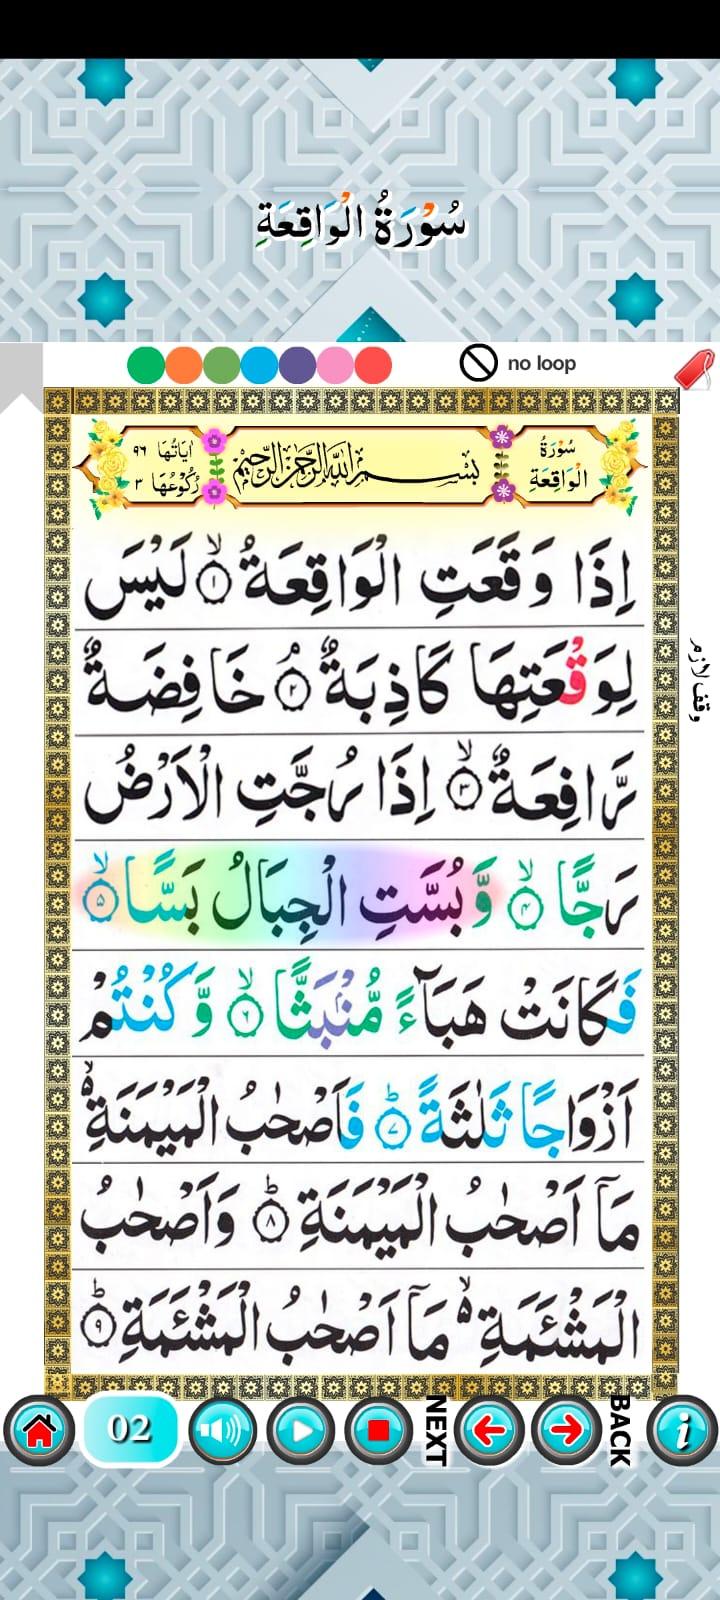 سُوْرَةُ الْوَاقِعَةِ
no loop
سُوْرَةُ الْوَاقِعَةِ
بِسْمِ اللّٰهِ الرَّحْمٰنِ الرَّحِيْمِ
اٰيَاتُهَا ٩٦
رُكُوْعُهَا ٣
اِذَا وَقَعَتِ الْوَاقِعَةُ ۙ﴿١﴾ لَيْسَ
لِوَقْعَتِهَا كَاذِبَةٌ ۘ﴿٢﴾ خَافِضَةٌ
رَّافِعَةٌ ۙ﴿٣﴾ اِذَا رُجَّتِ الْاَرْضُ
رَجًّا ۙ﴿٤﴾ وَّبُسَّتِ الْجِبَالُ بَسًّا ۙ﴿٥﴾
فَكَانَتْ هَبَآءً مُّنْۢبَثًّا ۙ﴿٦﴾ وَّكُنْتُمْ
اَزْوَاجًا ثَلٰثَةً ؕ﴿٧﴾ فَاَصْحٰبُ الْمَيْمَنَةِ ۙ۬
مَاۤ اَصْحٰبُ الْمَيْمَنَةِ ؕ﴿٨﴾ وَاَصْحٰبُ
الْمَشْـَٔمَةِ ۙ۬ مَاۤ اَصْحٰبُ الْمَشْـَٔمَةِ ؕ﴿٩﴾
وقف لازم
02
NEXT
BACK
i